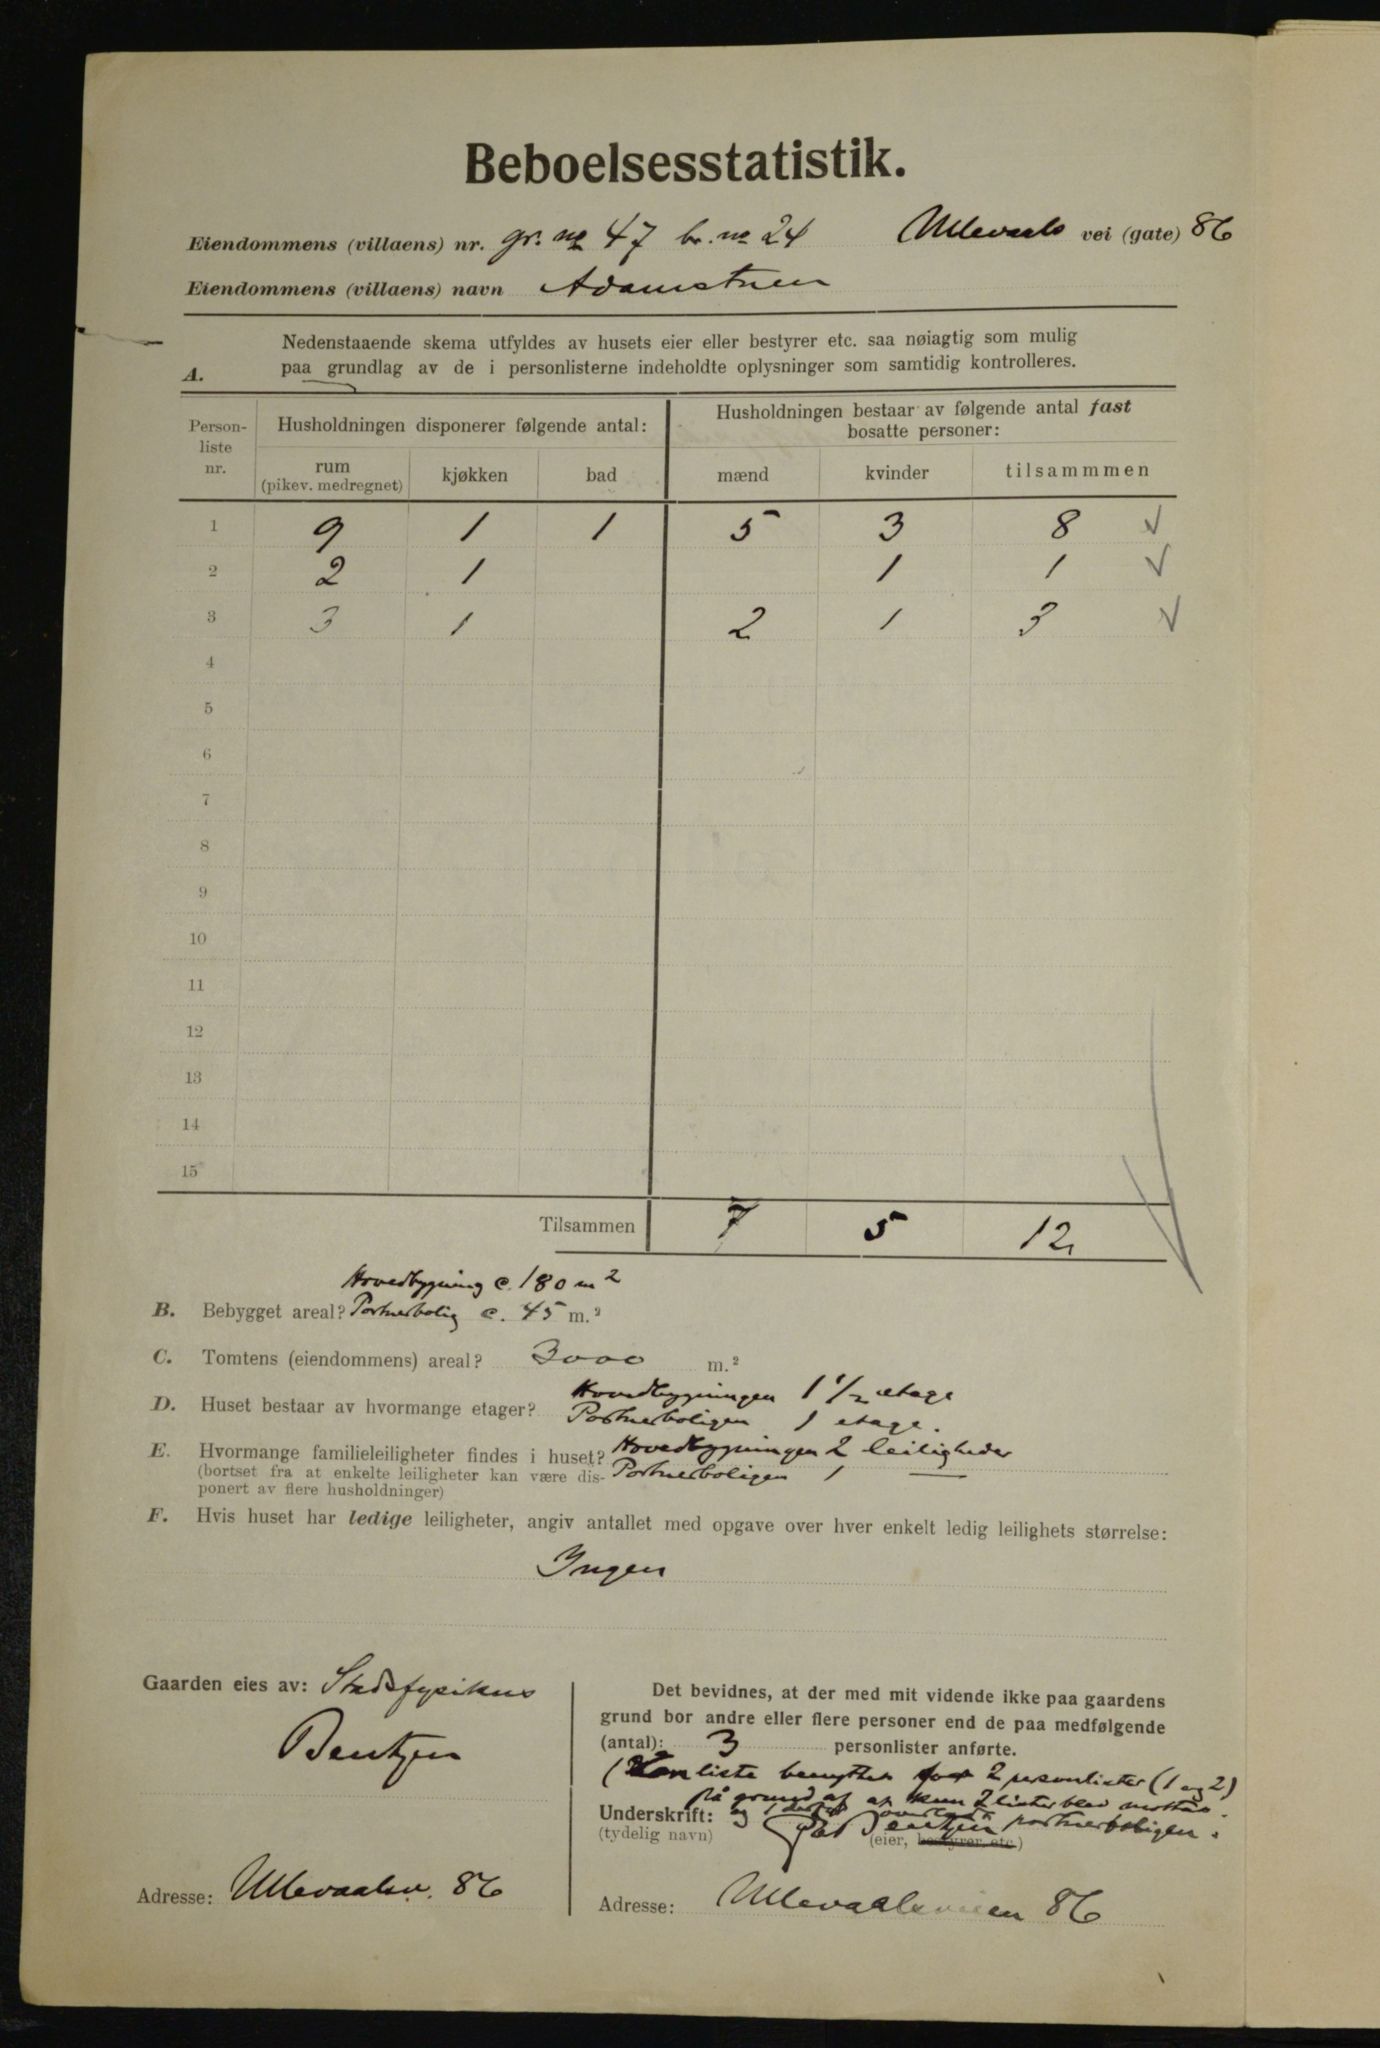 Beboelsesstatistik.
Eiendommens (villaens) nr. gr. no 47 br. no 24 Ullevaals vei (gate) 86
Eiendommens (villaens) navn Adamstuen
Nedenstaaende skema utfyldes av husets eier eller bestyrer etc. saa nøiagtig som mulig
A. paa grundlag av de i personlisterne indeholdte oplysninger som samtidig kontrolleres.
Husholdningen bestaar av følgende antal fast
Person- Husholdningen disponerer følgende antal: bosatte personer:
liste
nr. rum kjøkken bad mænd kvinder tilsammmen
(pikev. medregnet)
1 9 1 1 5 3 8 ✓
2 2 1 1 1 ✓
3 3 1 2 1 3 ✓
4
5
6
7
8
9
10
11
12
13
14
15
Tilsammen 7 5 12
Hovedbygning c. 180 m2
B. Bebygget areal? Portnerbolig c. 45 m.²
C. Tomtens (eiendommens) areal? 3000 m.²
Hovedbygningen 1 1/2 etage
D. Huset bestaar av hvormange etager? Portnerboligen 1 etage.
E. Hvormange familieleiligheter findes i huset? Hovedbygningen 2 leiligheder
(bortset fra at enkelte leiligheter kan være dis- Portnerboligen 1 —
ponert av flere husholdninger)
F. Hvis huset har ledige leiligheter, angiv antallet med opgave over hver enkelt ledig leilighets størrelse:
Ingen
Gaarden eies av: Stadsfysikus
Bentzen
Adresse: Ullevaalsv. 86
Det bevidnes, at der med mit vidende ikke paa gaardens
grund bor andre eller flere personer end de paa medfølgende
(antal): 3 personlister anførte.
( liste benyttet for 2 personlister (1 og 2)
på grund af at kun 2 lister blev mottat.
Underskrift: og 1 Bentzen portnerboligen.
(tydelig navn) (eier, bestyrer etc.)
Adresse: Ullevaalsveien 86